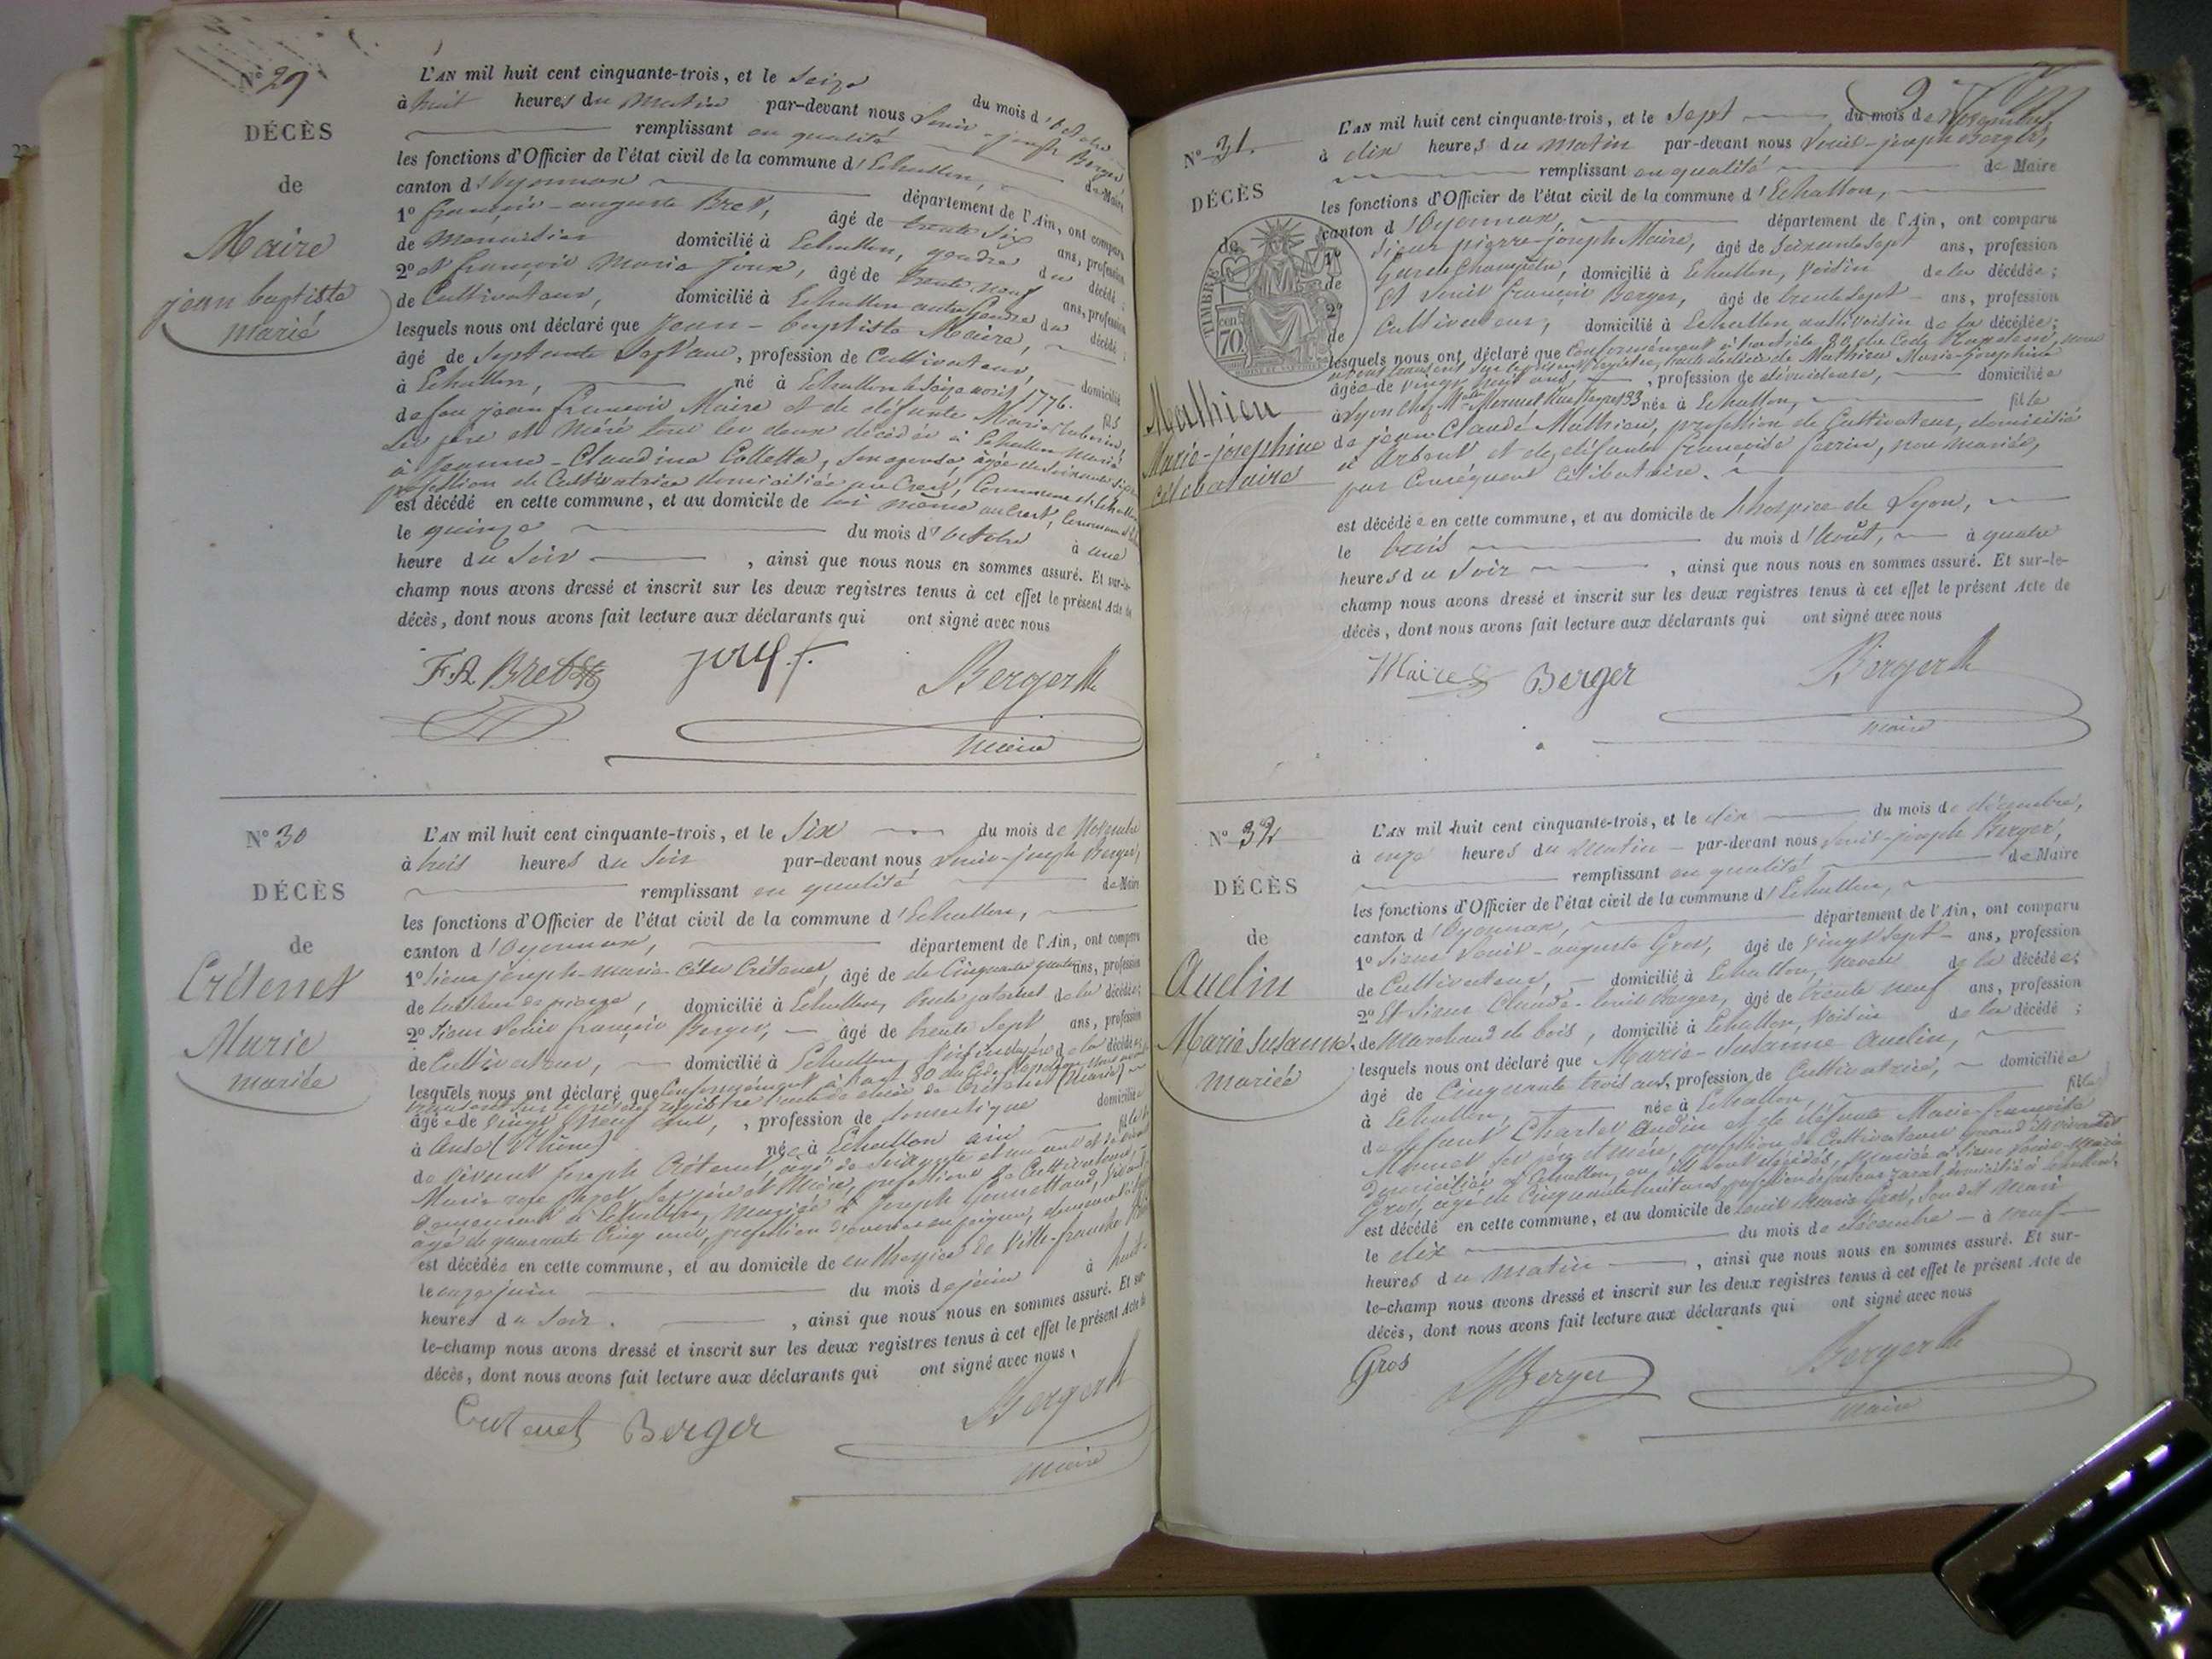 N° 29
DÉCÈS
de
Maire
jean baptiste
marié
L'AN mil huit cent cinquante-trois, et le Seize du mois d'8bre
à huit heures du Matin par-devant nous Louis-joseph Berger
remplissant en qualité de Maire
les fonctions d'Officier de l'état civil de la commune d'Echallon,
canton d'Oyonnax département de l'Ain, ont comparu
1° françois-auguste Bret, âgé de trente six ans, profession
de Menuisier domicilié à Echallon, gendre du décédé;
2° et françois Marie Joux, âgé de trente neuf ans, profession
de Cultivateur, domicilié à Echallon autre Gendre du décédé;
lesquels nous ont déclaré que Jean-baptiste Maire,
âgé de Septante Sept ans, profession de Cultivateur, domicilié
à Echallon, né à Echallon le Seize août 1776. fils
de feu jean françois Maire et de défunte Marie
Ses père et Mère tous les deux décédés à Echallon marié
à Jeanne-Claudine Collette, Son épouse, âgée de Soixante
profession de Cultivatrice domiciliée au Crest, Commune d'Echallon
est décédé en cette commune, et au domicile de lui même au Crest, Commune
le quinze du mois d'octobre à une
heure du Soir, ainsi que nous nous en sommes assuré. Et sur-le-
champ nous avons dressé et inscrit sur les deux registres tenus à cet effet le présent Acte de
décès, dont nous avons fait lecture aux déclarants qui ont signé avec nous
F.A. Bret joux f. Berger
Maire
N° 30
DÉCÈS
de
Crétenet
Marie
mariée
L'AN mil huit cent cinquante-trois, et le Six du mois de Novembre
à trois heures du Soir par-devant nous Louis-joseph Berger,
remplissant en qualité de Maire
les fonctions d'Officier de l'état civil de la commune d'Echallon,
canton d'Oyonnax, département de l'Ain, ont comparu
1° Sieur joseph-marie Crétenet, âgé de de Cinquante quatre ans, profession
de tailleur de pierre, domicilié à Echallon, Oncle paternel de la décédée;
2° Sieur Louis françois Berger, âgé de trente Sept ans, profession
de Cultivateur, domicilié à Echallon, de la décédée;
lesquels nous ont déclaré que Conformément à l'art 80 du Code Napoléon, nous avons
transcrit sur le présent registre l'acte de décès de Crétenet (Marie)
âgée de vingt neuf ans, profession de domestique domiciliée
à Anse (Rhône) née à Echallon ain fille
de vivant Joseph Crétenet, âgé de Soixante et un ans et de
Marie rose Ses père et Mère, profession de Cultivateurs,
demeurant à Echallon, Mariée à Joseph
âgé de quarante Cinq ans, profession d'ouvrier en peignes,
est décédée en cette commune, et au domicile de en l'hospice de Ville-franche
le onze juin du mois de juin à huit
heures du Soir. , ainsi que nous nous en sommes assuré. Et sur-
le-champ nous avons dressé et inscrit sur les deux registres tenus à cet effet le présent Acte de
décès, dont nous avons fait lecture aux déclarants qui ont signé avec nous,
Crétenet Berger Berger
Maire
N° 31.
DÉCÈS
de
TIMBRE
cen. 70
Mathieu
Marie-josephine
célibataire
L'AN mil huit cent cinquante-trois, et le Sept du mois de Novembre
à dix heures du Matin par-devant nous Louis-joseph Berger,
remplissant en qualité de Maire
les fonctions d'Officier de l'état civil de la commune d'Echallon,
canton d'Oyonnax, département de l'Ain, ont comparu
1° Sieur pierre-joseph Maire, âgé de Soixante Sept ans, profession
de Garde Champêtre, domicilié à Echallon, Voisin de la décédée;
2° Et Louis françois Berger, âgé de trente Sept ans, profession
de Cultivateur, domicilié à Echallon aussi voisin de la décédée;
lesquels nous ont déclaré que Conformément à l'article 80 du Code Napoléon, nous
avons transcrit sur le présent registre, l'acte de décès de Mathieu Marie-josephine
âgée de vingt huit ans, profession de dévideuse, domiciliée
à Lyon chez Mme Mermet 93 née à Echallon, fille
de jean Claude Mathieu, profession de Cultivateur, domicilié
à Arbent et de défunte françoise Perrin, non mariée,
par Conséquent Célibataire.
est décédée en cette commune, et au domicile de l'hospice de Lyon,
le trois du mois d'Août, à quatre
heures du Soir , ainsi que nous nous en sommes assuré. Et sur-le-
champ nous avons dressé et inscrit sur les deux registres tenus à cet effet le présent Acte de
décès, dont nous avons fait lecture aux déclarants qui ont signé avec nous
Maire Berger Berger
Maire
N° 32
DÉCÈS
de
Audin
Marie Susanne
mariée
L'AN mil huit cent cinquante-trois, et le dix du mois de décembre,
à onze heures du Matin par-devant nous Louis-joseph Berger,
remplissant en qualité de Maire
les fonctions d'Officier de l'état civil de la commune d'Echallon,
canton d'Oyonnax, département de l'Ain, ont comparu
1° Sieur Louis-auguste Gros, âgé de Vingt Sept ans, profession
de Cultivateur, domicilié à Echallon, neveu de la décédée;
2° Et Sieur Claude-louis Berger, âgé de trente neuf ans, profession
de Marchand de bois, domicilié à Echallon, Voisin de la décédé;
lesquels nous ont déclaré que Marie-Susanne Audin,
âgé de Cinquante trois ans, profession de Cultivatrice, domiciliée
à Echallon, née à Echallon, fille
de défunt Charles Audin et de défunte Marie-françoise
Mermet Ses père et mère, profession de Cultivateurs quand ils vivaient
domiciliés à Echallon, où ils sont décédés, Mariée à Sieur Louis-Marie
Gros, âgé de Cinquante huit ans, domicilié à Echallon.
est décédé en cette commune, et au domicile de Louis Marie Gros, Son dit Mari
le dix du mois de décembre à neuf
heures du Matin , ainsi que nous nous en sommes assuré. Et sur-
le-champ nous avons dressé et inscrit sur les deux registres tenus à cet effet le présent Acte de
décès, dont nous avons fait lecture aux déclarants qui ont signé avec nous
Gros Berger Berger
Maire